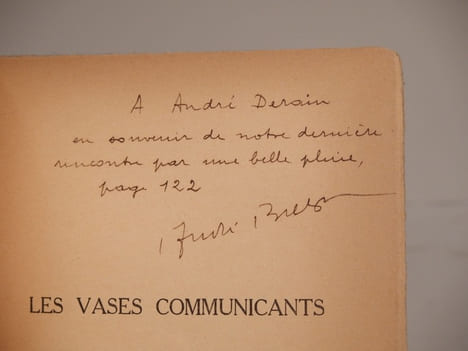 A André Derain
en souvenir de notre dernière
rencontre par une belle pluie,
page 122
André Breton
LES VASES COMMUNICANTS